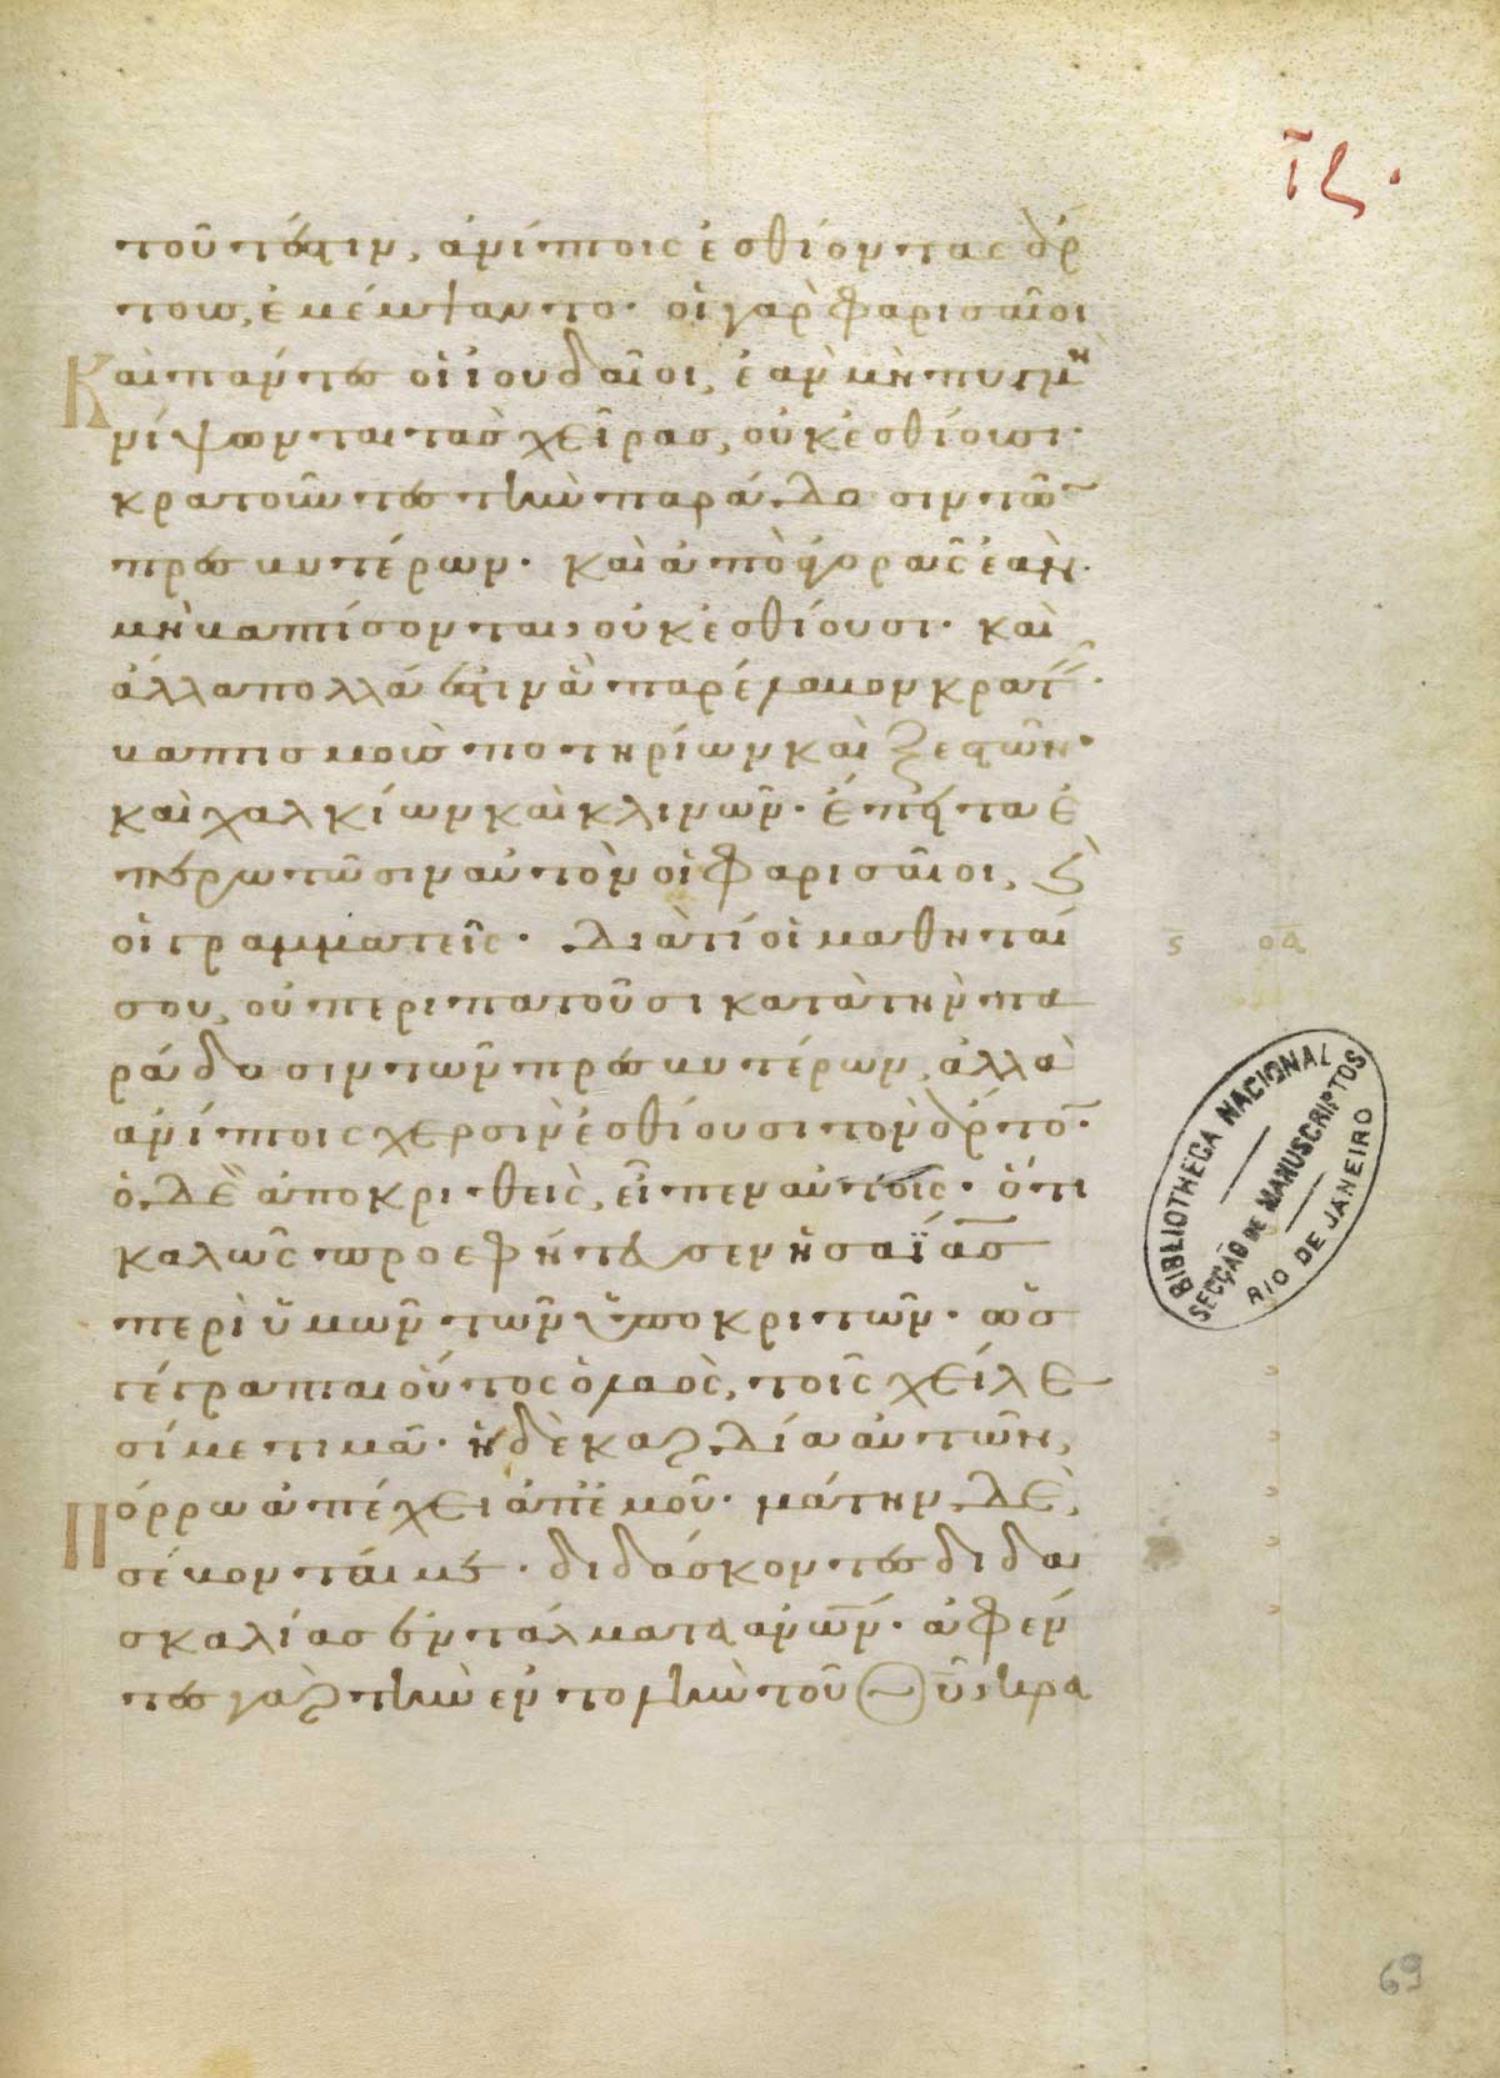 ις·
τοῦτέστιν, ἀνίπτοις ἐσθίοντας ἄρ
τους, ἐμέμψαντο· οἱ γὰρ φαρισαῖοι
Καὶ πάντες οἱ ἰουδαῖοι, ἐὰν μὴ πυγμῇ
νίψωνται τὰς χεῖρας, οὐκ ἐσθίουσι·
κρατοῦντες τὴν παράδοσιν τῶ
πρεσβυτέρων· καὶ ἀπὸ ἀγορᾶς ἐὰν
μὴ βαπτίσονται, οὐκ ἐσθίουσι· καὶ
ἄλλα πολλά ἐστιν ἃ παρέλαβον κρατ·
βαπτισμοὺς ποτηρίων καὶ ξεστῶν·
καὶ χαλκίων καὶ κλινῶν· ἔπειτα ἐ
περωτῶσιν αὐτὸν οἱ φαρισαῖοι, ϗ
οἱ γραμματεῖς· διὰ τί οἱ μαθηταί
ς οα
σου, οὐ περιπατοῦσι κατὰ τὴν πα
ράδοσιν τῶν πρεσβυτέρων, ἀλλὰ
ἀνίπτοις χερσὶν ἐσθίουσι τὸν ἄρτο·
ὁ δὲ ἀποκριθεὶς, εἶπεν αὐτοῖς· ὅτι
καλῶς προεφήτευσεν ἠσαΐας
περὶ ὑμῶν τῶν ὑποκριτῶν· ὡς
γέγραπται οὗτος ὁ λαὸς, τοῖς χείλε
σί με τιμᾷ· ἡ δὲ καρδία αὐτῶν,
Πόρρω ἀπέχει ἀπ' ἐμοῦ· μάτην δὲ,
σέβονταί με· διδάσκοντες διδα
σκαλίας ἐντάλματα ανων· ἀφέν
τες γὰρ τὴν ἐντολὴν τοῦ Θυ, κρα
BIBLIOTHECA NACIONAL
SECÇÃO DE MANUSCRIPTOS
RIO DE JANEIRO
69